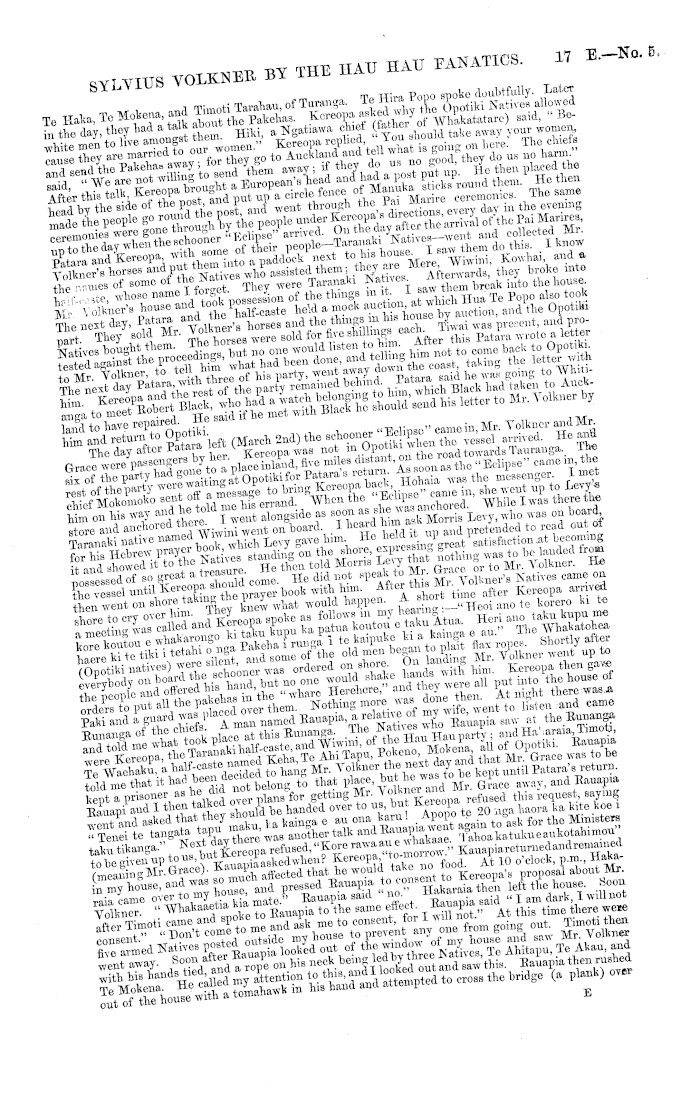 SYLVIUS VOLKNER BY THE HAU HAU FANATICS. 17 E.—No. 5.
Te Haka, Te Mokena, and Timoti Tarahau, of Turanga. Te Hira Popo spoke doubtfully. Later
in the day, they had a talk about the Pakehas. Kereopa asked why the Opotiki Natives allowed
white men to live amongst them. Hiki, a Ngatiawa chief (father of Whakatatare) said, "Be-
cause they are married to our women." Kereopa replied, "You should take away your women,
and send the Pakehas away; for they go to Auckland and tell what is going on here. The chiefs
said, "We are not willing to send them away; if they do us no good, they do us no harm."
After this talk, Kereopa brought a European's head and had a post put up. He then placed the
head by the side of the post, and put up a circle fence of Manuka sticks round them. He then
made the people go round the post, and went through the Pai Marire ceremonies. The same
ceremonies were gone through by the people under Kereopa's directions, every day in the evening
up to the day when the schooner "Eclipse" arrived. On the day after the arrival of the Pai Marires,
Patara and Kereopa, with some of their people—Taranaki Natives—went and collected Mr.
Volkner's horses and put them into a paddock next to his house. I saw them do this. I know
the names of some of the Natives who assisted them; they are Mere, Wiwini, Kowhai, and a
half-caste, whose name I forget. They were Taranaki Natives. Afterwards, they broke into
Mr. Volkner's house and took possession of the things in it. I saw them break into the house.
The next day, Patara and the half-caste held a mock auction, at which Hua Te Popo also took
part. They sold Mr. Volkner's horses and the things in his house by auction, and the Opotiki
Natives bought them. The horses were sold for five shillings each. Tiwai was present, and pro-
tested against the proceedings, but no one would listen to him. After this Patara wrote a letter
to Mr. Volkner, to tell him what had been done, and telling him not to come back to Opotiki.
The next day Patara, with three of his party, went away down the coast, taking the letter with
him. Kereopa and the rest of the party remained behind. Patara said he was going to Whiti-
anga to meet Robert Black, who had a watch belonging to him, which Black had taken to Auck-
land to have repaired. He said if he met with Black he should send his letter to Mr. Volkner by
him and return to Opotiki.
The day after Patara left (March 2nd) the schooner "Eclipse" came in, Mr. Volkner and Mr.
Grace were passengers by her. Kereopa was not in Opotiki when the vessel arrived. He and
six of the party had gone to a place inland, five miles distant, on the road towards Tauranga. The
rest of the party were waiting at Opotiki for Patara's return. As soon as the "Eclipse" came in, the
chief Mokomoko sent off a message to bring Kereopa back, Hohaia was the messenger. I met
him on his way and he told me his errand. When the "Eclipse" came in, she went up to Levy's
store and anchored there. I went alongside as soon as she was anchored. While I was there the
Taranaki native named Wiwini went on board. I heard him ask Morris Levy, who was on board,
for his Hebrew prayer book, which Levy gave him. He held it up and pretended to read out of
it and showed it to the Natives standing on the shore, expressing great satisfaction at becoming
possessed of so great a treasure. He then told Morris Levy that nothing was to be landed from
the vessel until Kereopa should come. He did not speak to Mr. Grace or to Mr. Volkner. He
then went on shore taking the prayer book with him. After this Mr. Volkner's Natives came on
shore to cry over him. They knew what would happen. A short time after Kereopa arrived
a meeting was called and Kereopa spoke as follows in my hearing:—"Heoi ano te korero ki te
kore koutou e whakarongo ki taku kupu ka patua koutou e taku Atua. Heri ano taku kupu me
haere ki te tiki i tetahi o nga Pakeha i runga i te kaipuke ki a kainga e au." The Whakatohea
(Opotiki natives) were silent, and some of the old men began to plait flax ropes. Shortly after
everybody on board the schooner was ordered on shore. On landing Mr. Volkner went up to
the people and offered his hand, but no one would shake hands with him. Kereopa then gave
orders to put all the pakehas in the "whare Herehere," and they were all put into the house of
Paki and a guard was placed over them. Nothing more was done then. At night there was a
Runanga of the chiefs. A man named Rauapia, a relative of my wife, went to listen and came
and told me what took place at this Runanga. The Natives who Rauapia saw at the Runanga
were Kereopa, the Taranaki half-caste, and Wiwini, of the Hau Hau party; and Hakaraia, Timoti,
Te Wachaku, a half-caste named Keha, Te Ahi Tapu, Pokeno, Mokena, all of Opotiki. Rauapia
told me that it had been decided to hang Mr. Volkner the next day and that Mr. Grace was to be
kept a prisoner as he did not belong to that place, but he was to be kept until Patara's return.
Rauapi and I then talked over plans for getting Mr. Volkner and Mr. Grace away, and Rauapia
went and asked that they should be handed over to us, but Kereopa refused this request, saying
"Tenei te tangata tapu maku, ka kainga e au ona karu! Apopo te 20 nga haora ka kite koe i
taku tikanga." Next day there was another talk and Rauapia went again to ask for the Ministers
to be given up to us, but Kereopa refused, "Kore rawa au e whakaae. Tahoa katukueaukotahimou"
(meaning Mr. Grace). Kauapia asked when? Kereopa, "to-morrow." Kauapia returned and remained
in my house, and was so much affected that he would take no food. At 10 o'clock, p.m., Haka-
raia came over to my house, and pressed Rauapia to consent to Kereopa's proposal about Mr.
Volkner. "Whakaaetia kia mate." Rauapia said "no." Hakaraia then left the house. Soon
after Timoti came and spoke to Rauapia to the same effect. Rauapia said "I am dark, I will not
consent." "Don't come to me and ask me to consent, for I will not." At this time there were
five armed Natives posted outside my house to prevent any one from going out. Timoti then
went away. Soon after Rauapia looked out of the window of my house and saw Mr. Volkner
with his hands tied, and a rope on his neck being led by three Natives, Te Ahitapu, Te Akau, and
Te Mokena. He called my attention to this, and I looked out and saw this. Rauapia then rushed
out of the house with a tomahawk in his hand and attempted to cross the bridge (a plank) over
E